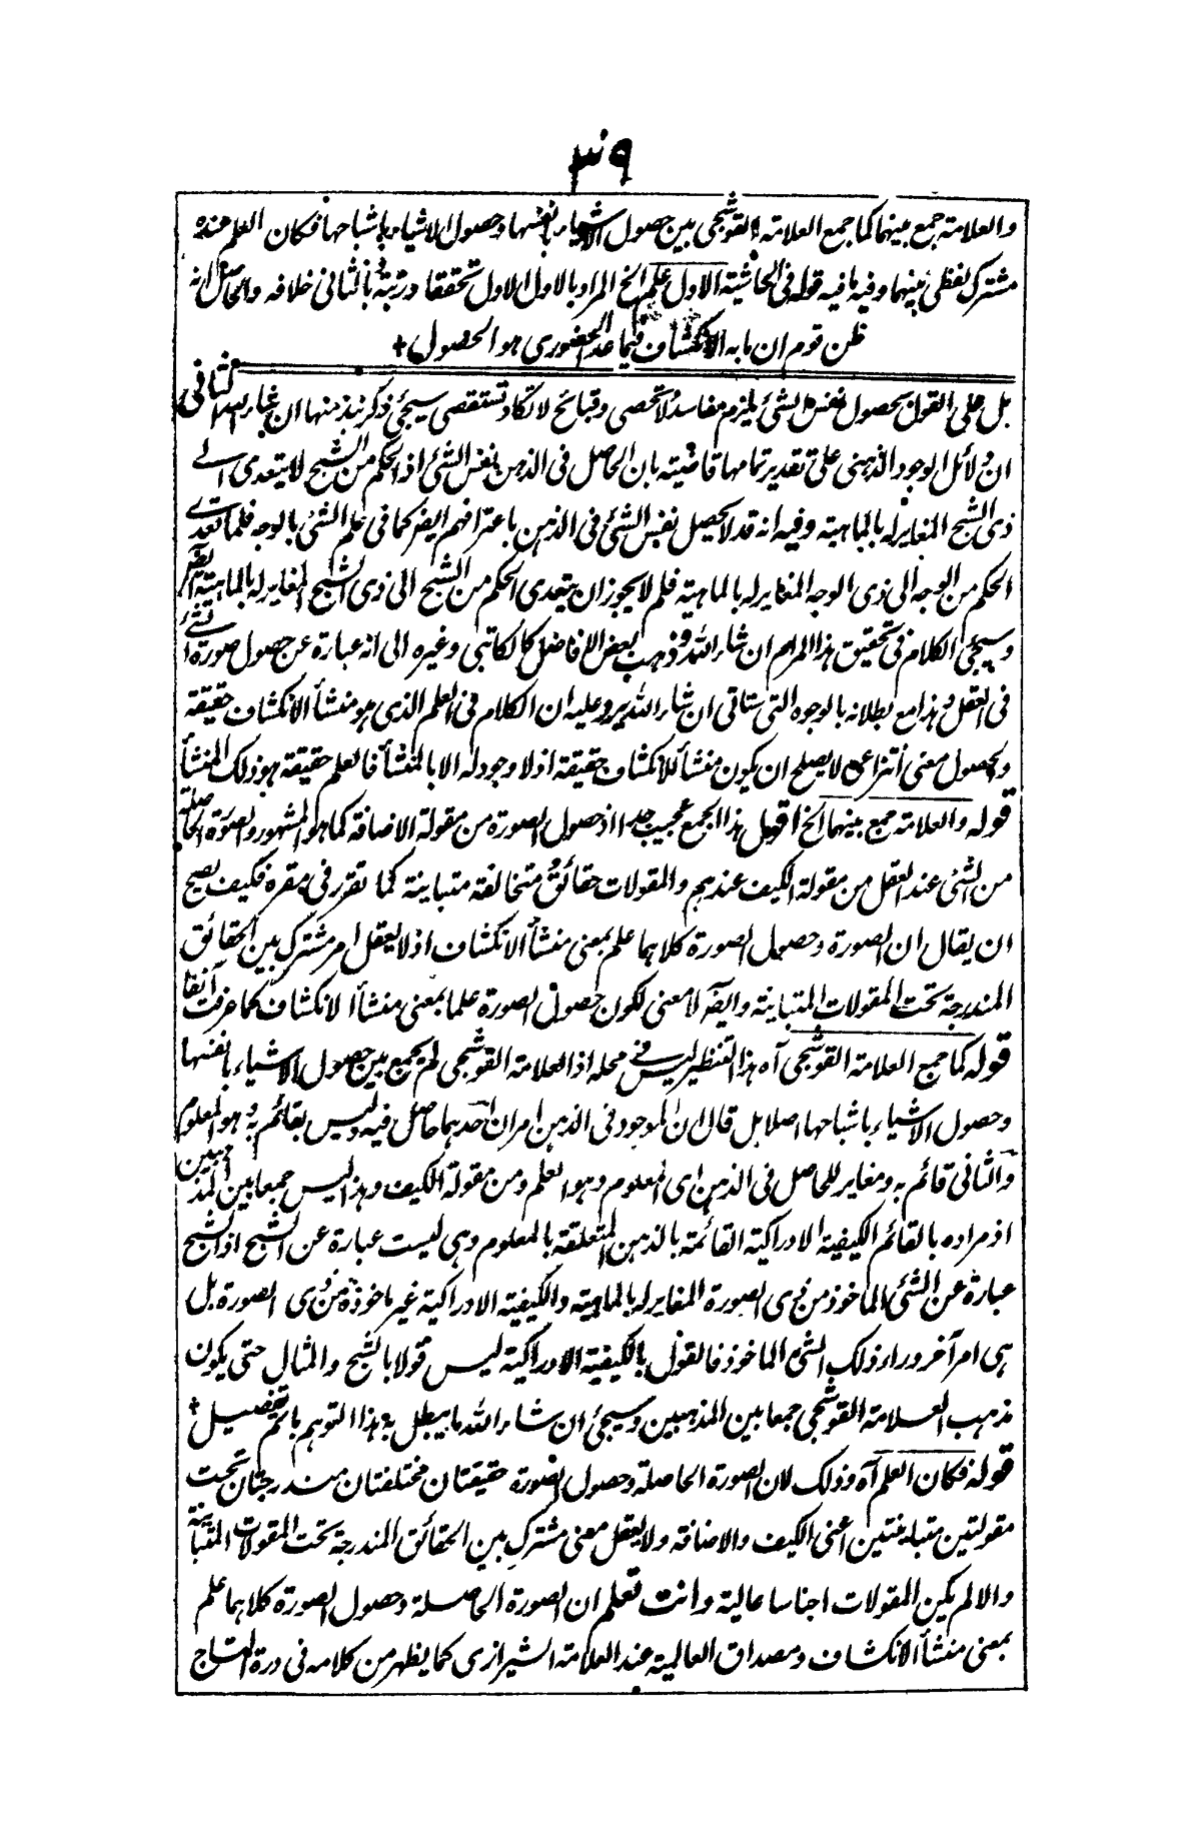 ٣٩
والعلامة جمع بينهما كما جمع العلامة القوشجى بين حصول الاشياء بانفسها وحصول الاشياء باشباحها فكان العلم عنده
مشترك لفظى بينهما وفيه ما فيه قوله فى الحاشية الاول علم الخ المراد بالاول الاول تحققا ورتبة فالثانى خلافه والحاصل انه
ظن قوم ان ما به الانكشاف فيما عدا الحضورى هو الحصول
بل على القول بحصول نفس الشئ يلزم مفاسد لا تحصى وقبائح لا تكاد تستقصى سيجئ ذكر نبذ منها ان شاء الله الثانى
ان دلائل الوجود الذهنى على تقدير تمامها قاضية بان الحاصل فى الذهن نفس الشئ اذ الحكم من الشبح لا يتعدى الى
ذى الشبح المغاير له بالماهية وفيه انه قد لا يحصل نفس الشئ فى الذهن باعترافهم ايضر كما فى علم الشئ بالوجه فلما تعدى
الحكم من الوجه الى ذى الوجه المغاير له بالماهية فلم لا يجوز ان يتعدى الحكم من الشبح الى ذى الشبح المغاير له بالماهية
وسيجئ الكلام فى تحقيق هذا المرام ان شاء الله وذهب بعض الافاضل كالكاتبى وغيره الى انه عبارة عن حصول صورة الشئ
فى العقل وهذا مع بطلانه بالوجوه التى ستاتى ان شاء الله يرد عليه ان الكلام فى العلم الذى هو منشأ الانكشاف حقيقة
والحصول معنى انتزاعى لا يصلح ان يكون منشأ للانكشاف حقيقة اذ لا وجود له الا بالمنشأ فالعلم حقيقة هو ذلك المنشأ
قوله والعلامة جمع بينهما الخ اقول هذا الجمع عجيب جدا اذ حصول الصورة من مقولة الاضافة كما هو المشهور والصورة الحاصلة
من الشئ عند العقل من مقولة الكيف عندهم والمقولات حقائق متخالفة متباينة كما تقرر فى مقره فكيف يصح
ان يقال ان الصورة وحصول الصورة كلاهما علم بمعنى منشأ الانكشاف اذ لا يعقل امر مشترك بين الحقائق
المندرجة تحت المقولات المتباينة وايضا لا معنى لكون حصول الصورة علما بمعنى منشأ الانكشاف كما عرفت آنفا
قوله كما جمع العلامة القوشجى آه هذا التنظير ليس فى محله اذ العلامة القوشجى لم يجمع بين حصول الاشياء بانفسها
وحصول الاشياء باشباحها اصلا بل قال ان الموجود فى الذهن امران احدهما حاصل فيه وليس بقائم به وهو المعلوم
والثانى قائم به ومغاير للحاصل فى الذهن اى المعلوم وهو العلم ومن مقولة الكيف وهذا ليس جمعا بين المذهبين
اذ مراده بالقائم الكيفية الادراكية القائمة بالذهن المتعلقة بالمعلوم وهى ليست عبارة عن الشبح اذ الشبح
عبارة عن الشئ الماخوذ من ذى الصورة المغاير له بالماهية والكيفية الادراكية غير ماخوذة من ذى الصورة بل
هى امر آخر وراء ذلك الشئ الماخوذ فالقول بالكيفية الادراكية ليس قولا بالشبح والمثال حتى يكون
مذهب العلامة القوشجى جمعا بين المذهبين وسيجئ ان شاء الله ما يبطل به هذا التوهم باتم تفصيل
قوله فكان العلم آه وذلك لان الصورة الحاصلة وحصول الصورة حقيقتان مختلفتان مندرجتان تحت
مقولتين متباينتين اعنى الكيف والاضافة ولا يعقل معنى مشترك بين الحقائق المندرجة تحت المقولات المتباينة
والا لم يكن المقولات اجناسا عالية وانت تعلم ان الصورة الحاصلة وحصول الصورة كلاهما علم
بمعنى منشأ الانكشاف ومصداق العالمية عند العلامة الشيرازى كما يظهر من كلامه فى درة التاج